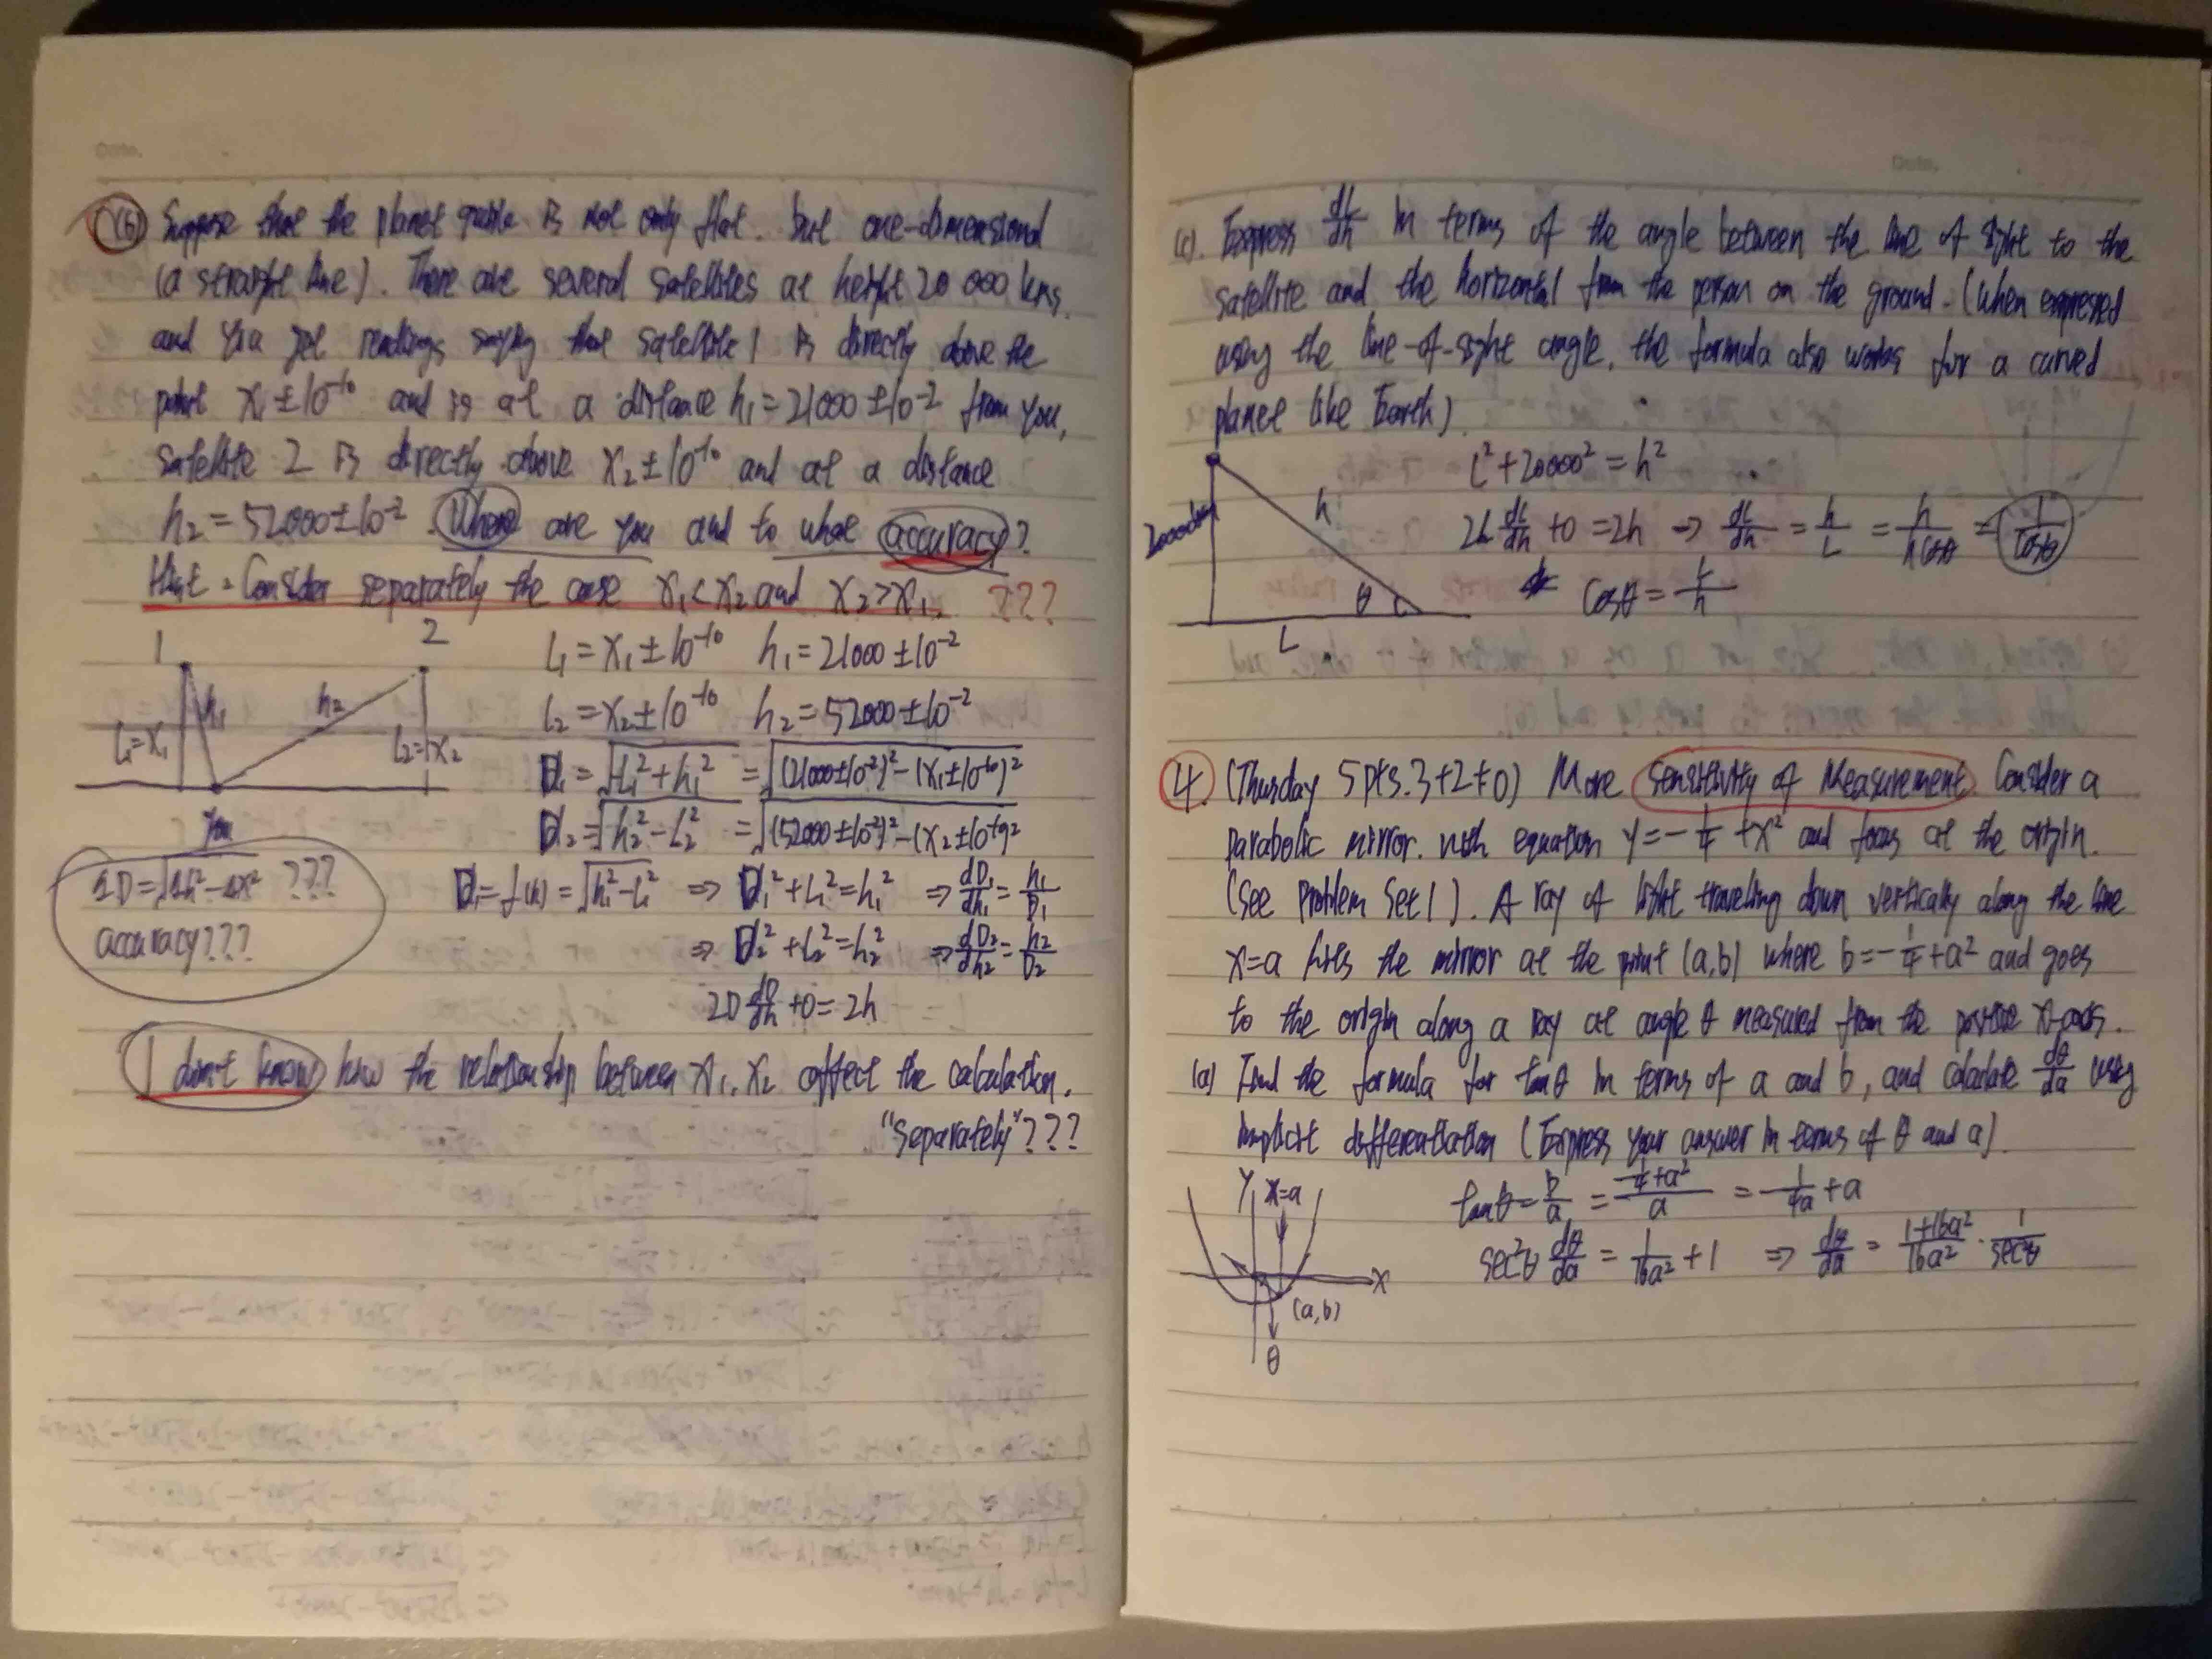 Date.
(b) Suppose that the planet quirk is not only flat. but one-dimensional
(a straight line). There are several satellites at height 20 000 kms.
and you get readings saying that satellite 1 is directly above the
point x₁ ± 10⁻¹⁰ and is at a distance h₁ = 21000 ± 10⁻² from you,
satellite 2 is directly above x₂ ± 10⁻¹⁰ and at a distance
h₂ = 52000 ± 10⁻². Where are you and to what accuracy?
Hint = Consider separately the case x₁ < x₂ and x₂ > x₁. ???
1 2
L₁ = x₁ ± 10⁻¹⁰ h₁ = 21000 ± 10⁻²
L₂ = x₂ ± 10⁻¹⁰ h₂ = 52000 ± 10⁻²
h₁ h₂
L₁ = x₁ L₂ = x₂
D₁ = √(L₁² + h₁²) = √((21000 ± 10⁻²)² - (x₁ ± 10⁻¹⁰)²)
D₂ = √(h₂² - L₂²) = √((52000 ± 10⁻²)² - (x₂ ± 10⁻¹⁰)²)
you
ΔD = √(Δh² - Δx²) ???
accuracy???
D₁ = f(h) = √(h₁² - L₁²) ⇒ D₁² + L₁² = h₁² ⇒ dD₁/dh₁ = h₁/D₁
⇒ D₂² + L₂² = h₂² ⇒ dD₂/dh₂ = h₂/D₂
2D dD/dh + 0 = 2h
I don't know how the relationship between x₁, x₂ affect the calculation.
"separately"???
Date.
(c). Express dL/dh in terms of the angle between the line of sight to the
satellite and the horizontal from the person on the ground. (When expressed
using the line-of-sight angle, the formula also works for a curved
planet like Earth)
L² + 20000² = h²
20000km h
2L dL/dh + 0 = 2h ⇒ dL/dh = h/L = h/(h cosθ) = 1/cosθ
cosθ = L/h
θ
L
4. (Thursday 5pts. 3+2+0) More sensitivity of Measurement. Consider a
parabolic mirror. with equation y = -1/4 + x² and focus at the origin.
(See Problem Set 1). A ray of light traveling down vertically along the line
x=a hits the mirror at the point (a,b) where b = -1/4 + a² and goes
to the origin along a ray at angle θ measured from the positive x-axis.
(a) Find the formula for tanθ in terms of a and b, and calculate dθ/da using
implicit differentiation (Express your answer in terms of θ and a).
y x=a
tanθ = b/a = (-1/4 + a²)/a = -1/4a + a
sec²θ dθ/da = 1/4a² + 1 ⇒ dθ/da = (1+16a²)/16a² · 1/sec²θ
x
(a,b)
θ